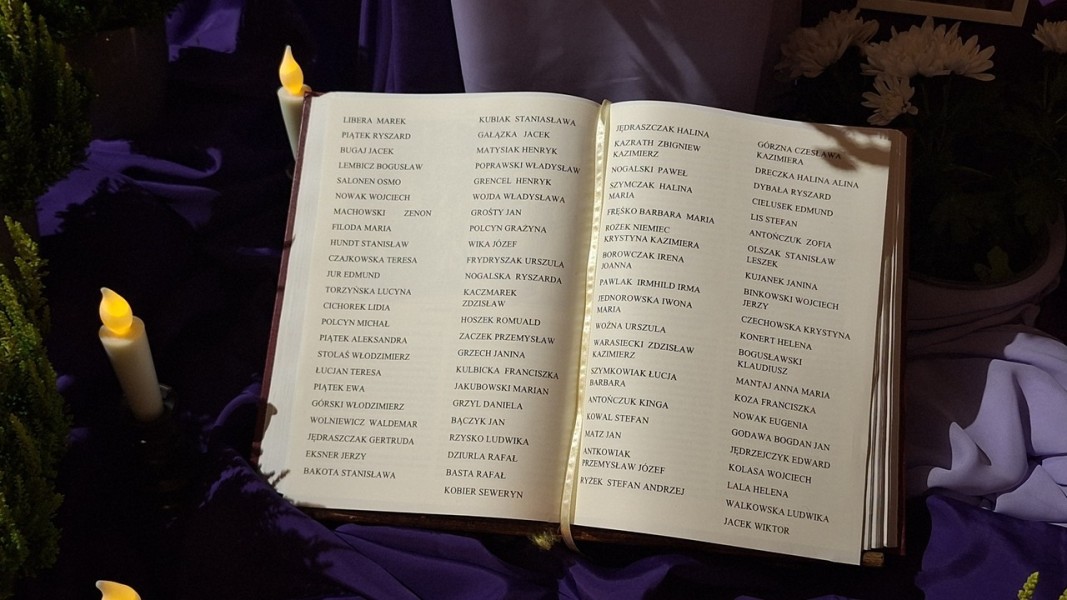 LIBERA MAREK
PIĄTEK RYSZARD
BUGAJ JACEK
LEMBICZ BOGUSŁAW
SALONEN OSMO
NOWAK WOJCIECH
MACHOWSKI ZENON
FILODA MARIA
HUNDT STANISŁAW
CZAJKOWSKA TERESA
JUR EDMUND
TORZYŃSKA LUCYNA
CICHOREK LIDIA
POLCYN MICHAŁ
PIĄTEK ALEKSANDRA
STOLAŚ WŁODZIMIERZ
ŁUCJAN TERESA
PIĄTEK EWA
GÓRSKI WŁODZIMIERZ
WOLNIEWICZ WALDEMAR
JĘDRASZCZAK GERTRUDA
EKSNER JERZY
BAKOTA STANISŁAWA
KUBIAK STANIASŁAWA
GAŁĄZKA JACEK
MATYSIAK HENRYK
POPRAWSKI WŁADYSŁAW
GRENCEL HENRYK
WOJDA WŁADYSŁAWA
GROŚTY JAN
POLCYN GRAŻYNA
WIKA JÓZEF
FRYDRYSZAK URSZULA
NOGALSKA RYSZARDA
KACZMAREK
ZDZISŁAW
HOSZEK ROMUALD
ZACZEK PRZEMYSŁAW
GRZECH JANINA
KULBICKA FRANCISZKA
JAKUBOWSKI MARIAN
GRZYL DANIELA
BĄCZYK JAN
RZYSKO LUDWIKA
DZIURLA RAFAŁ
BASTA RAFAŁ
KOBIER SEWERYN
JĘDRASZCZAK HALINA
KAZRATH ZBIGNIEW
KAZIMIERZ
NOGALSKI PAWEŁ
SZYMCZAK HALINA
MARIA
FRĘŚKO BARBARA MARIA
ROŻEK NIEMIEC
KRYSTYNA KAZIMIERA
BOROWCZAK IRENA
JOANNA
PAWLAK IRMHILD IRMA
JEDNOROWSKA IWONA
MARIA
WOŹNA URSZULA
WARASIECKI ZDZISŁAW
KAZIMIERZ
SZYMKOWIAK ŁUCJA
BARBARA
ANTOŃCZUK KINGA
KOWAL STEFAN
MATZ JAN
ANTKOWIAK
PRZEMYSŁAW JÓZEF
RYŻEK STEFAN ANDRZEJ
GÓRZNA CZESŁAWA
KAZIMIERA
DRECZKA HALINA ALINA
DYBAŁA RYSZARD
CIELUSEK EDMUND
LIS STEFAN
ANTOŃCZUK ZOFIA
OLSZAK STANISŁAW
LESZEK
KUJANEK JANINA
BINKOWSKI WOJCIECH
JERZY
CZECHOWSKA KRYSTYNA
KONERT HELENA
BOGUSŁAWSKI
KLAUDIUSZ
MANTAJ ANNA MARIA
KOZA FRANCISZKA
NOWAK EUGENIA
GODAWA BOGDAN JAN
JĘDRZEJCZYK EDWARD
KOLASA WOJCIECH
LALA HELENA
WALKOWSKA LUDWIKA
JACEK WIKTOR